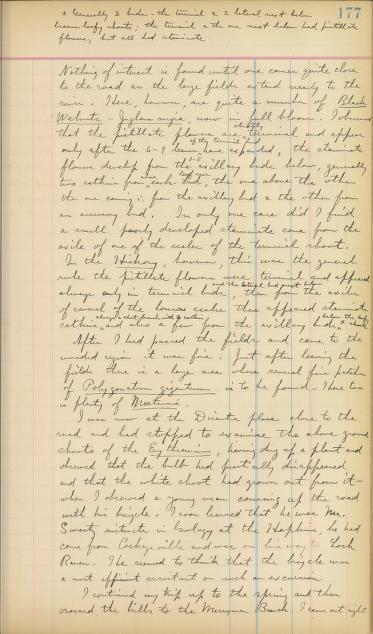 177
* Generally 3 buds - the terminal & 2 lateral next below
became leafy shoots; the terminal & the one next below had pistillate
flowers, but all had staminate.
Nothing of interest is found until one comes quite close
to the road as the large fields extend nearly to the
river. Here, however, are quite a number of Black
Walnuts - Juglans nigra, now in full bloom. I observed
that the pistillate flowers are terminal and appear
only after the 6-9 leaves have expanded, the staminate
flowers develop from the axillary buds below, generally
two catkins from each bud, the one above the other
the one coming from the axillary bud & the other from
an accessory bud. In only one case did I find
a small poorly developed staminate come from the
axils of one of the scales of the terminal shoot.
In the Hickory, however, this was the general
rule the pistillate flowers were terminal and appeared
always only in terminal buds, then from the axils
of several of the lower scales there appeared staminate
catkins, and also a few from the axillary buds
After I had passed the fields and came to the
wooded region it was fine. Just after leaving the
fields there is a large area where several fine patches
of Polygonatum giganteum is to be found. Here too
is plenty of Mertensia.
I was now at the Dicentra place close to the
road and had stopped to examine the above ground
shoots of the Erythronium, having dug up a plant and
observed that the bulb had practically disappeared
and that the white shoot had grown out from it -
when I observed a young man coming up the road
with his bicycle. I soon learned that he was Mr.
Swartz in Zoology at the Hopkins, he had
come from Cockeysville and was on his way to Loch
Raven. He seemed to think that the bicycle was
a most efficient assistant on such an excursion.
I continued my trip up to the spring and then
crossed the hills to the Merryman Branch. I came out right